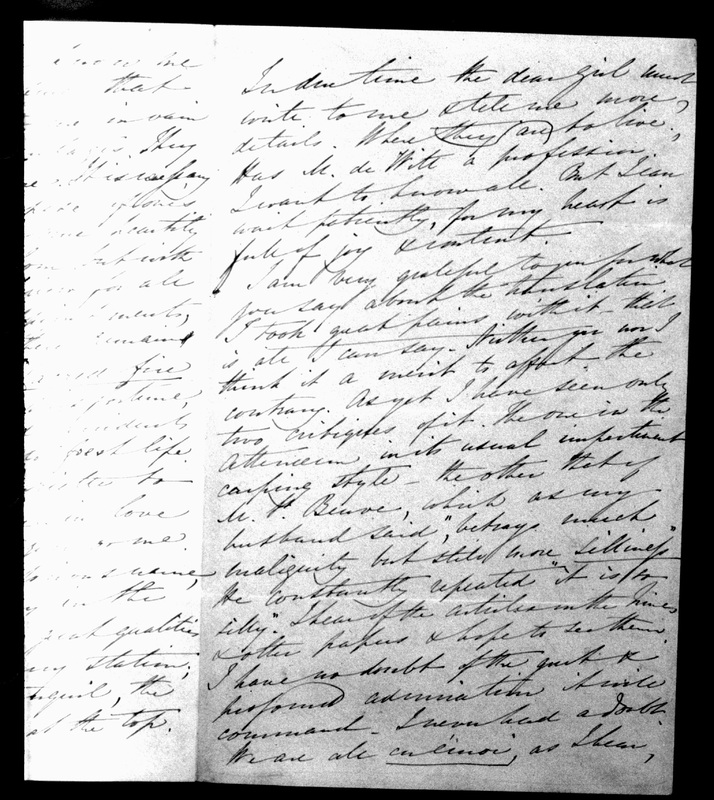 know me
that
in vain
They
This company
gloves
quantity
but with
for all
ments,
remains
five
fortune,
students
great life
to
in love
me
name,
in the
great qualities
my station,
tranquil, the
at the top.
In due time the dear girl must
write to me & tell me more,
details. Where they (are) to live,
Has M. de Witt a profession.
I want to know all. But I can
wait patiently, for my heart is
full of joy & content.
I am very grateful to you for what
you say about the translation.
I took great pains with it - that
is all I can say. Neither you nor I
think it a merit to affect the
contrary. As yet I have seen only
two critiques of it. The one in the
Atheneum in its usual impertinent
carping style - the other that of
M. St Beuve, which as my
husband said, "betrays much
malignity but still more silliness"
He constantly repeated "it is so
silly". I hear of the articles in the Times
& other papers & hope to see them.
I have no doubt of the great &
profound admiration it will
command - I never had a doubt.
We are all en émoi, as I hear,